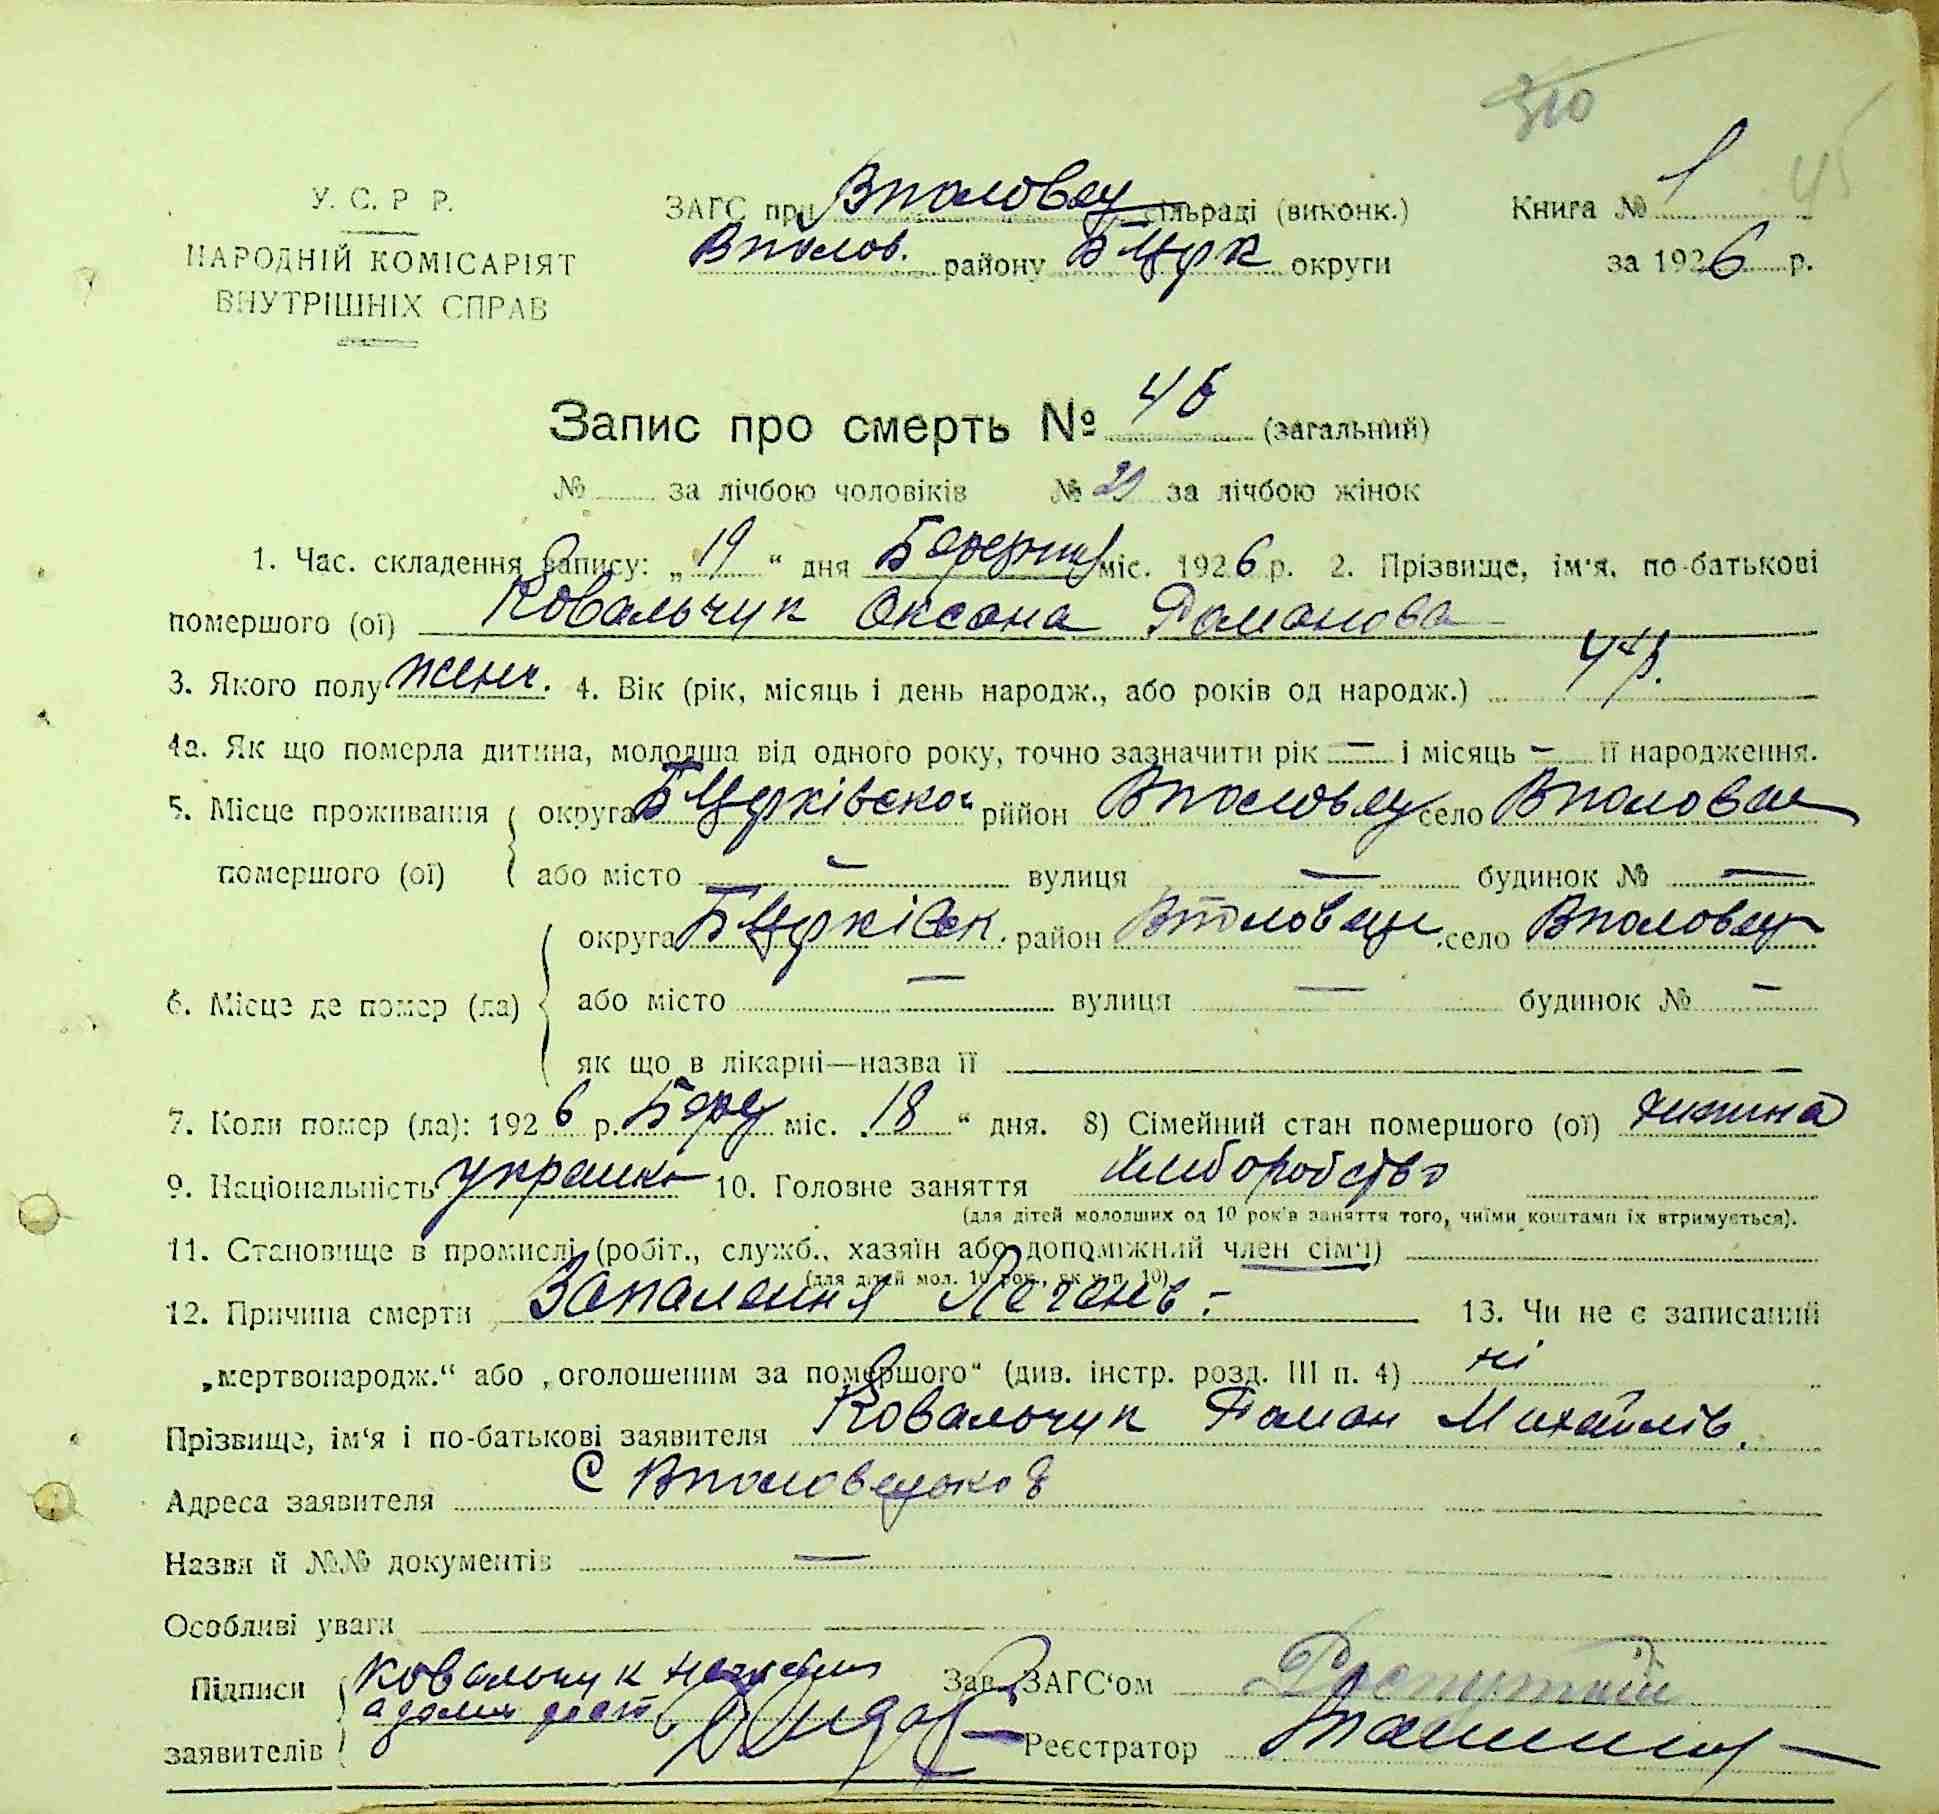 310
45
У. С. Р Р.
НАРОДНІЙ КОМІСАРІЯТ
ВНУТРІШНІХ СПРАВ
ЗАГС при Вполовец сільраді (виконк.)
Вполов. району БЦрк округи
Книга № 1
за 1926 р.
Запис про смерть № 46 (загальний)
№ за лічбою чоловіків № за лічбою жінок
1. Час. складення запису: „19“ дня Березня міс. 1926 р. 2. Прізвище, ім'я, по-батькові
помершого (ої) Ковальчук Оксана Романова
3. Якого полу женч. 4. Вік (рік, місяць і день народж., або років од народж.)
4а. Як що померла дитина, молодша від одного року, точно зазначити рік — і місяць — її народження.
5. Місце проживання округа БЦрківськой район Вполовец село Вполовец
помершого (ої) або місто — вулиця — будинок № —
округа БЦрківськ. район Вполовец село Вполовец
6. Місце де помер (ла) або місто — вулиця — будинок № —
як що в лікарні—назва її
7. Коли помер (ла): 1926 р. Берез міс. „18“ дня. 8) Сімейний стан помершого (ої) дитина
9. Національність українка 10. Головне заняття хлиборобство
(для дітей молодших од 10 років заняття того, чиїми коштами їх втримується).
11. Становище в промислі (робіт., служб., хазяїн або допоміжний член сім'ї)
(для дітей мол. 10 рок., як у п. 10)
12. Причина смерти Запаления Печень.- 13. Чи не є записаний
„мертвонародж.“ або „оголошеним за помершого“ (див. інстр. розд. III п. 4) ні
Прізвище, ім'я і по-батькові заявителя Ковальчук Роман Михайлів.
Адреса заявителя С Вполовецьков
Назви й №№ документів —
Особливі уваги
Підписи Ковальчук Зав. ЗАГС'ом Роспутній
заявителів Реєстратор